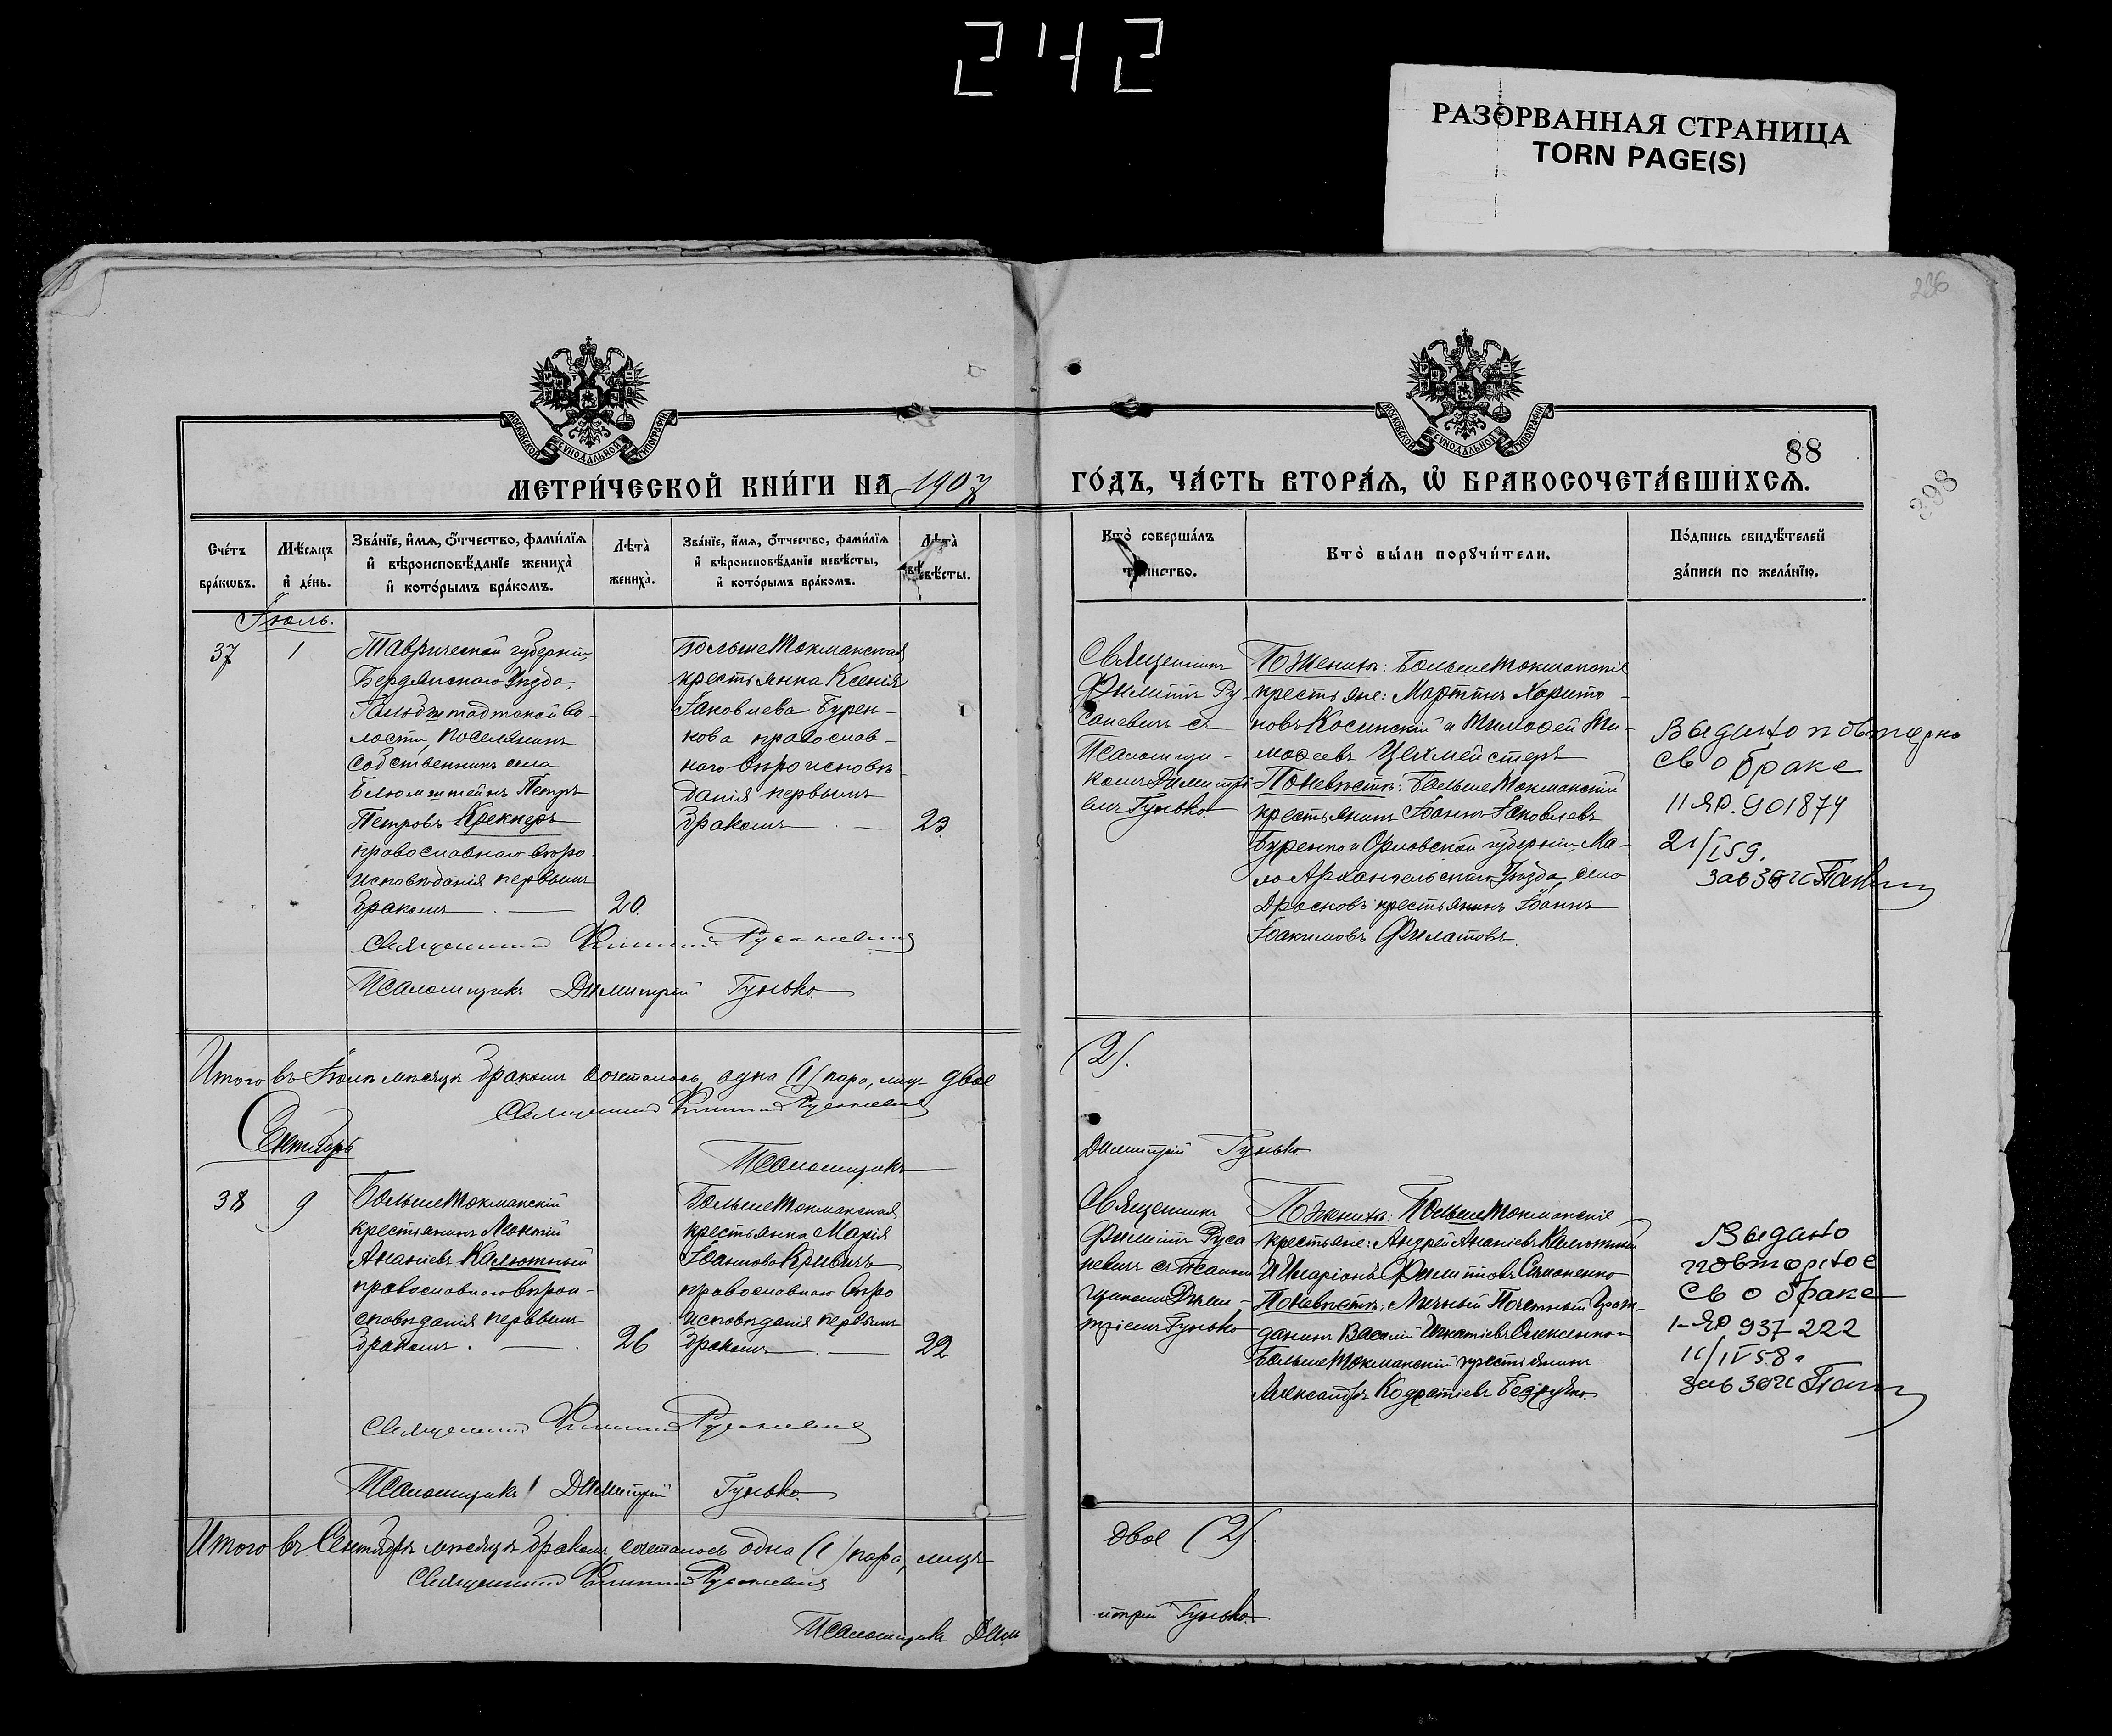 242
РАЗОРВАННАЯ СТРАНИЦА
TORN PAGE(S)
236
МОСКОВСКОЙ СѴНОДАЛЬНОЙ ТИПОГРАФІИ.
МОСКОВСКОЙ СѴНОДАЛЬНОЙ ТИПОГРАФІИ.
88
398
МЕТРИ́ЧЕСКОЙ КНИ́ГИ НА 1907
ГО́ДЪ, ЧА́СТЬ ВТОРА́Ѧ, Ѽ БРАКОСОЧЕТА́ВШИХСѦ.
Сче́тъ
бра́кѡвъ.
Мѣ́сяцъ
и҆ де́нь.
Зва́нїе, и҆́мѧ, ѻ҆́тчество, фами́лїѧ
и҆ вѣроисповѣ́данїе жениха̀
и҆ кото́рымъ бра́комъ.
Лѣта̀
жениха̀.
Зва́нїе, и҆́мѧ, ѻ҆́тчество, фами́лїѧ
и҆ вѣроисповѣ́данїе невѣ́сты,
и҆ кото́рымъ бра́комъ.
Лѣта̀
невѣ́сты.
Кто̀ соверша́лъ
та́инство.
Кто̀ бы́ли порꙋчи́тели.
По́дпись свидѣ́телей
за́писи по жела́нїю.
Іюль.
37
1
Таврической губерніи,
Бердянскаго Уѣзда,
Гальбштадтской во-
лости, поселянинъ
собственникъ села
Блюмштейнъ Петръ
Петровъ Креккеръ
православнаго вѣро-
исповѣданія первымъ
бракомъ
20.
БольшеТокмакская
крестьянка Ксенія
Іаковлева Бурен-
кова православ-
наго вѣроисповѣ-
данія первымъ
бракомъ
23.
Священникъ
Филиппъ Ру-
саневичъ съ
Псаломщи-
комъ Димитрі-
емъ Гунько.
По женихѣ: БольшеТокмакскіе
крестьяне: Мартинъ Харито-
новъ Косинскій и Тимоѳей Ти-
моѳеевъ Цехмейстеръ
По невѣстѣ: БольшеТокмакскій
крестьянинъ Іоаннъ Іаковлевъ
Буренко и Орловской губерніи, Ма-
ло Архангельскаго Уѣзда, села
Дросковъ крестьянинъ Іоаннъ
Іоакимовъ Филатовъ.
Выдано повторно
св о браке
II ЯР. 901874
21/I 59.
зав загс
Священникъ Филиппъ Русаневичъ
Псаломщикъ Димитрій Гунько.
Итого въ Іюлѣ мѣсяцѣ бракомъ сочеталось одна (1) пара, лицъ двое
(2).
Священникъ Филиппъ Русаневичъ
Сентябрь
Псаломщикъ
Димитрій Гунько
38
9
БольшеТокмакскій
крестьянинъ Леонтій
Ананіевъ Калютный
православнаго вѣрои-
сповѣданія первымъ
бракомъ.
26
БольшеТокмакская
крестьянка Марія
Іоаннова Кривичъ
православнаго вѣро
исповѣданія первымъ
бракомъ
22
Священникъ
Филиппъ Руса
невичъ съ Псалом
щикомъ Дими-
тріемъ Гунько
По женихѣ: БольшеТокмакскіе
крестьяне: Андрей Ананіевъ Калютный
и Иларіонъ Филипповъ Симоненко
По невѣстѣ: Личный Почетный Граж-
данинъ Василій Игнатіевъ Олексенко и
БольшеТокмакскій крестьянинъ
Александръ Кодратіевъ
Выдано
повторное
св о браке
I-ЯР 937222
11/IV 58г
зав загс
Священникъ Филиппъ Русаневичъ
Псаломщикъ Димитрій Гунько.
Итого въ Сентябрѣ мѣсяцѣ бракомъ сочеталось одна (1) пара, лицъ
двое (2).
Священникъ Филиппъ Русаневичъ
Псаломщикъ Дим
итрій Гунько.